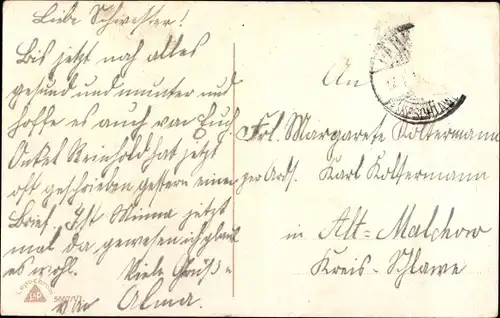 Liebe Schwester!
Bis jetzt noch alles
gesund und munter und
hoffe es auch von Euch.
Onkel Reinhold hat jetzt
oft geschrieben gestern einen
Brief. Ist Minna jetzt
mal da gewesen ich glaub
es wohl. Viele Grüße
von Alma.
An
Frl. Margarete Koltermann
per Adr. Karl Koltermann
in Alt-Malchow
Kreis-Schlawe